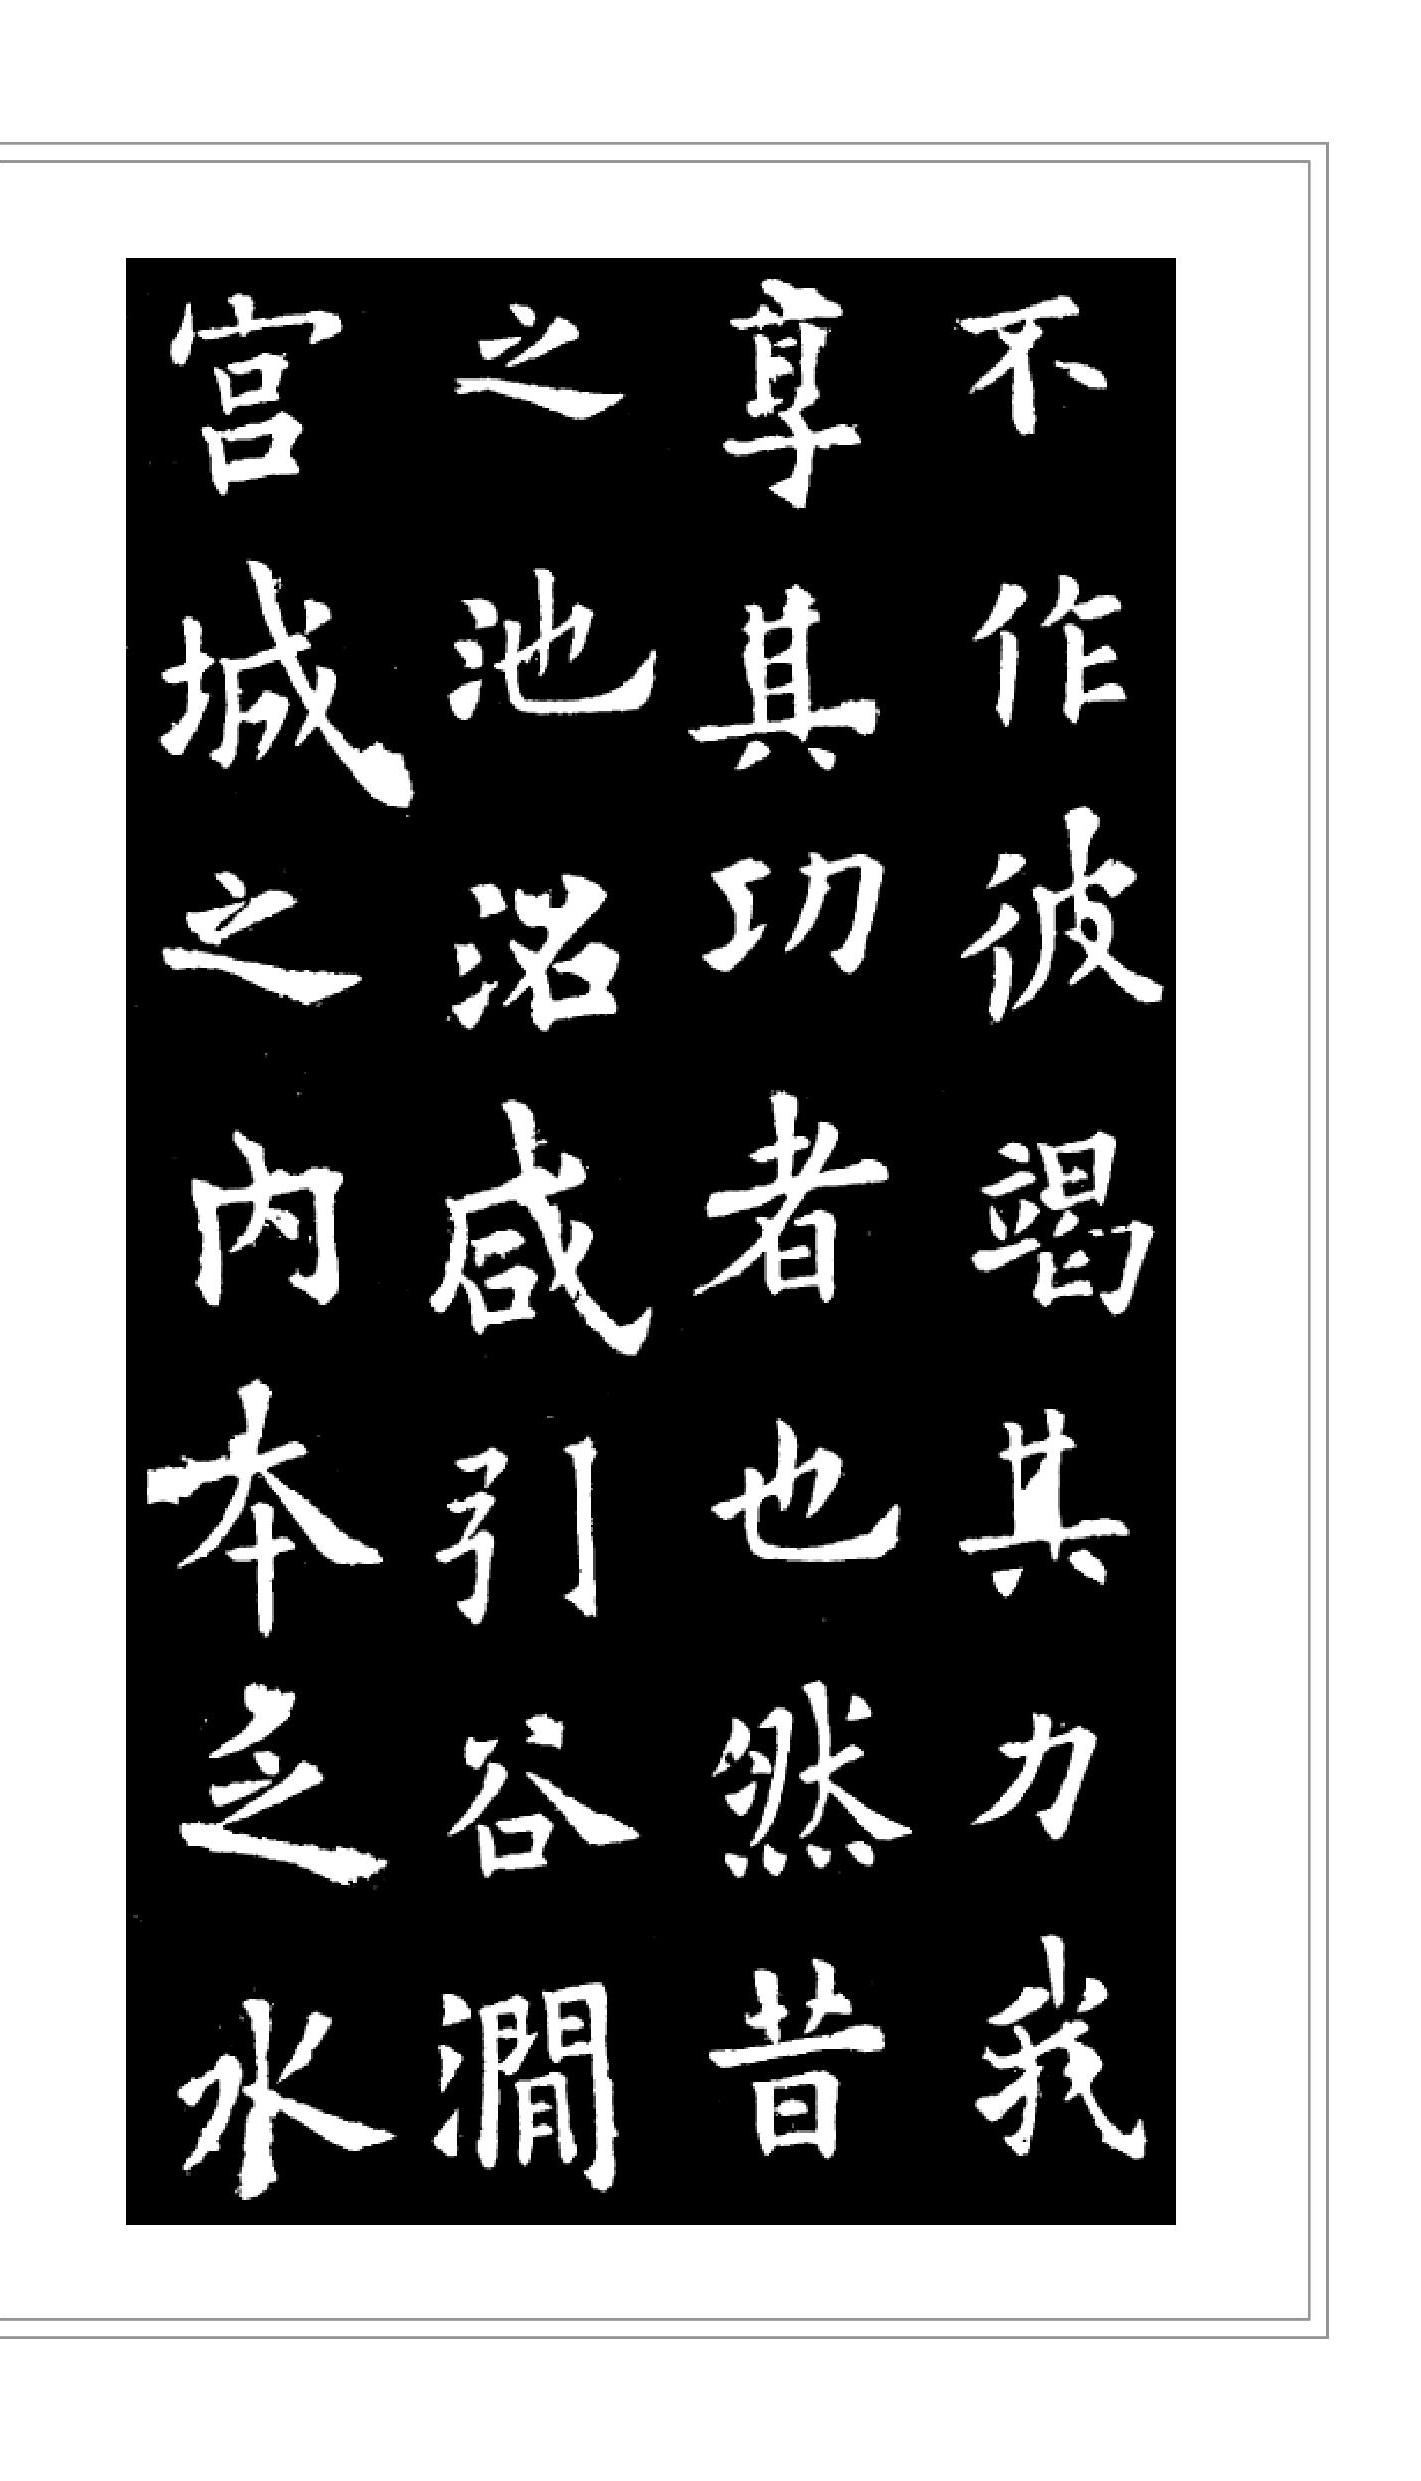 不作彼竭其力我
享其功者也然昔
之池沼咸引谷澗
宮城之内本乏水